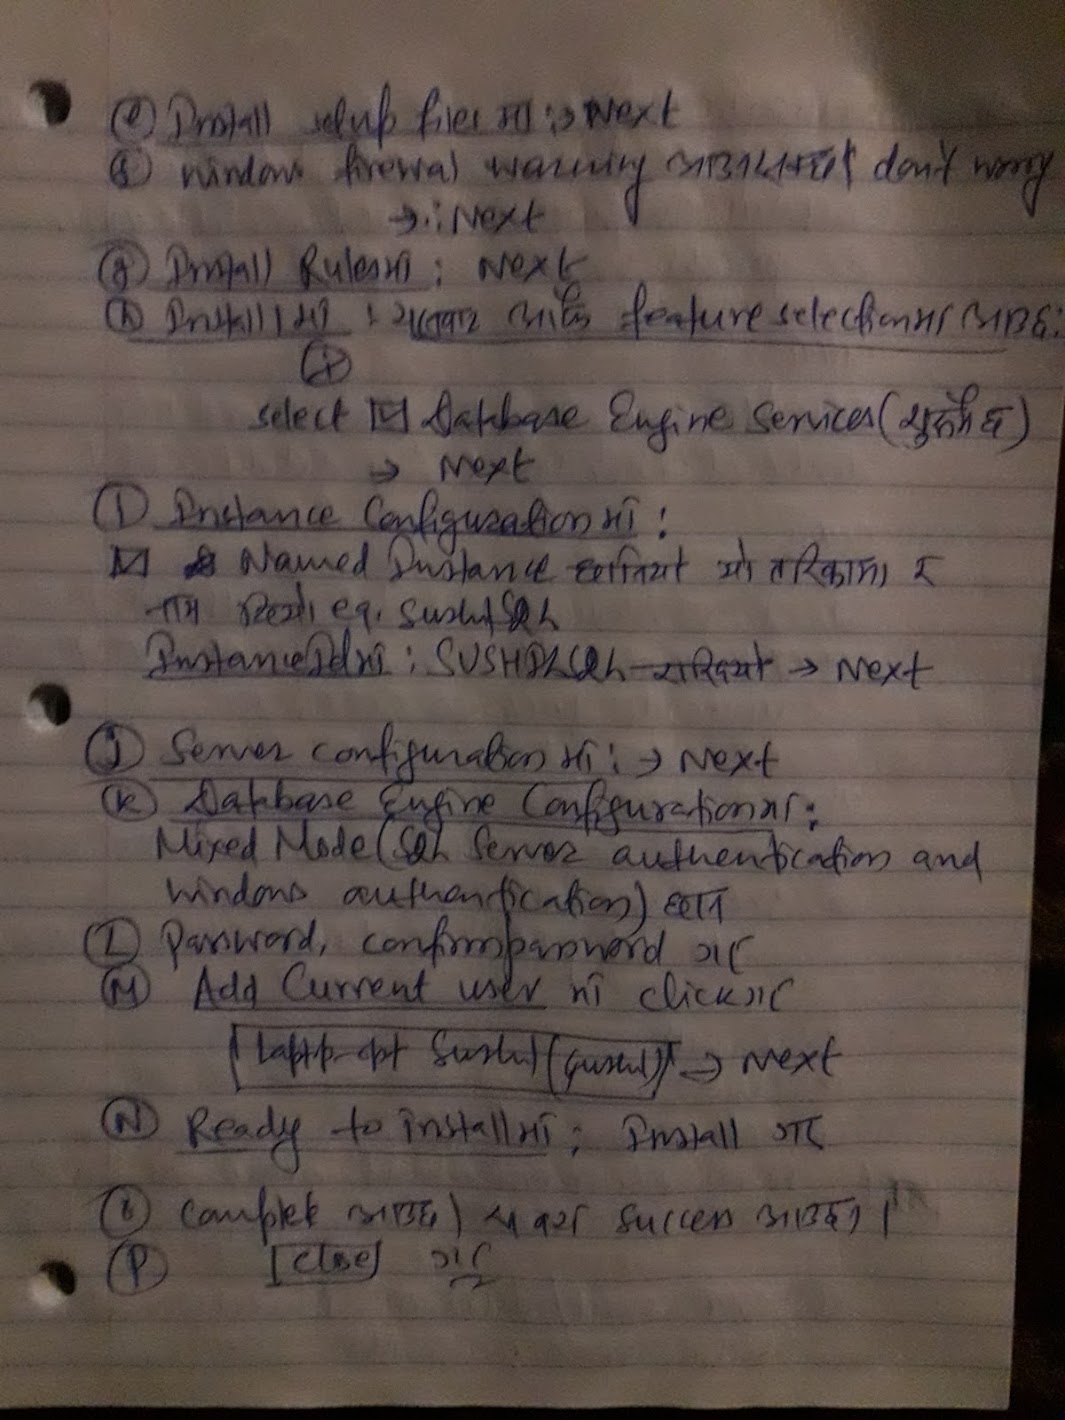 (e) Install setup files मा :→ Next
windows firewall warning don't worry
→ : Next
(g) Install Rules मा : Next
(h) Install मा : feature selection मा आउछ :
select ☑ Database Engine Services (
→ Next
(I) Instance Configuration मा :
☑ Named Instance यो तरिकामा र
नाम eg. Sushil SQL
Instance ID मा : SUSHILSQL → Next
(J) Server configuration मा : → Next
(K) Database Engine Configuration मा :
Mixed Mode (SQL Server authentication and
windows authentication) छान
(L) Password, confirm password गर
(M) Add Current user मा click गर
Sushil (Sushil) → Next
(N) Ready to install मा : Install गर
complete आउछ success आउछ ।
(P) [close] गर